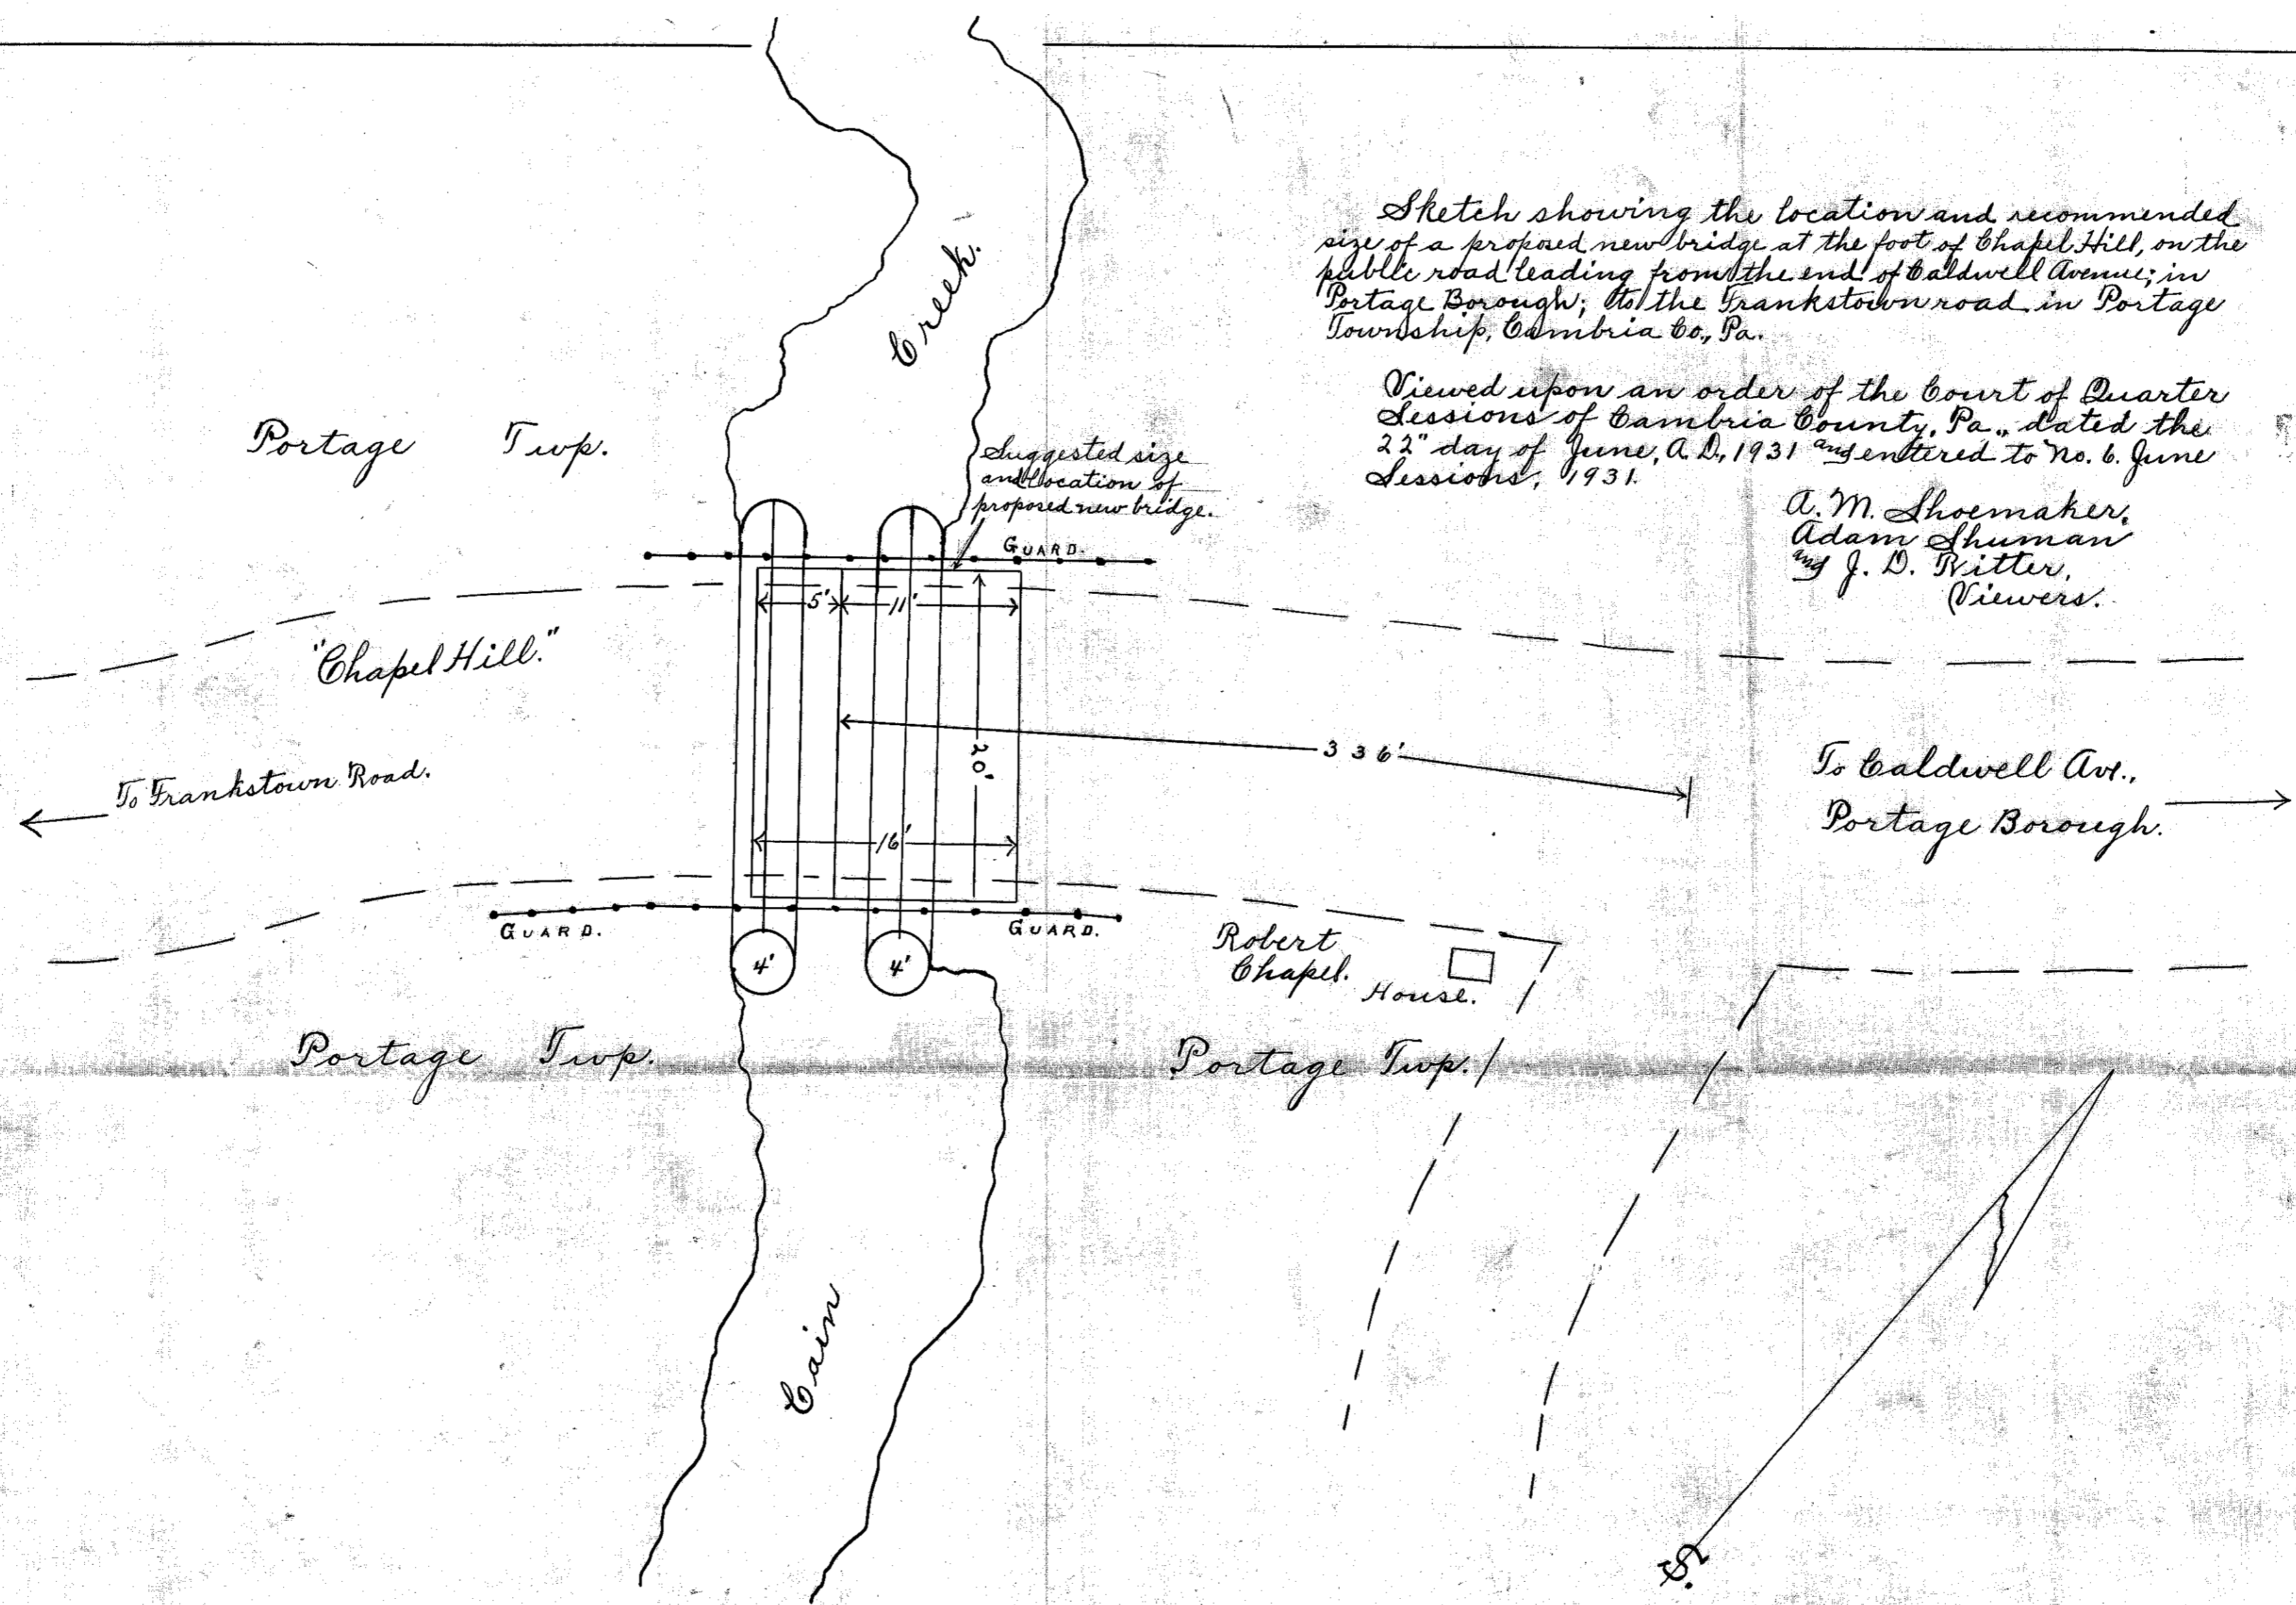 Sketch showing the location and recommended
size of a proposed new bridge at the foot of Chapel Hill, on the
public road leading from the end of Caldwell Avenue; in
Portage Borough; to the Frankstown road in Portage
Township, Cambria Co., Pa.
Viewed upon an order of the Court of Quarter
Sessions of Cambria County, Pa., dated the
22" day of June, A.D., 1931 and entered to No. 6. June
Sessions, 1931.
A. M. Shoemaker,
Adam Shuman
and J. D. Ritter,
Viewers.
Creek.
Portage Twp.
Suggested size
and location of
proposed new bridge.
GUARD.
5' 11'
"Chapel Hill."
336'
20'
To Frankstown Road.
To Caldwell Ave.,
Portage Borough.
16'
GUARD.
GUARD.
4'
4'
Robert
Chapel.
House.
Portage Twp.
Portage Twp.
Cain
S.